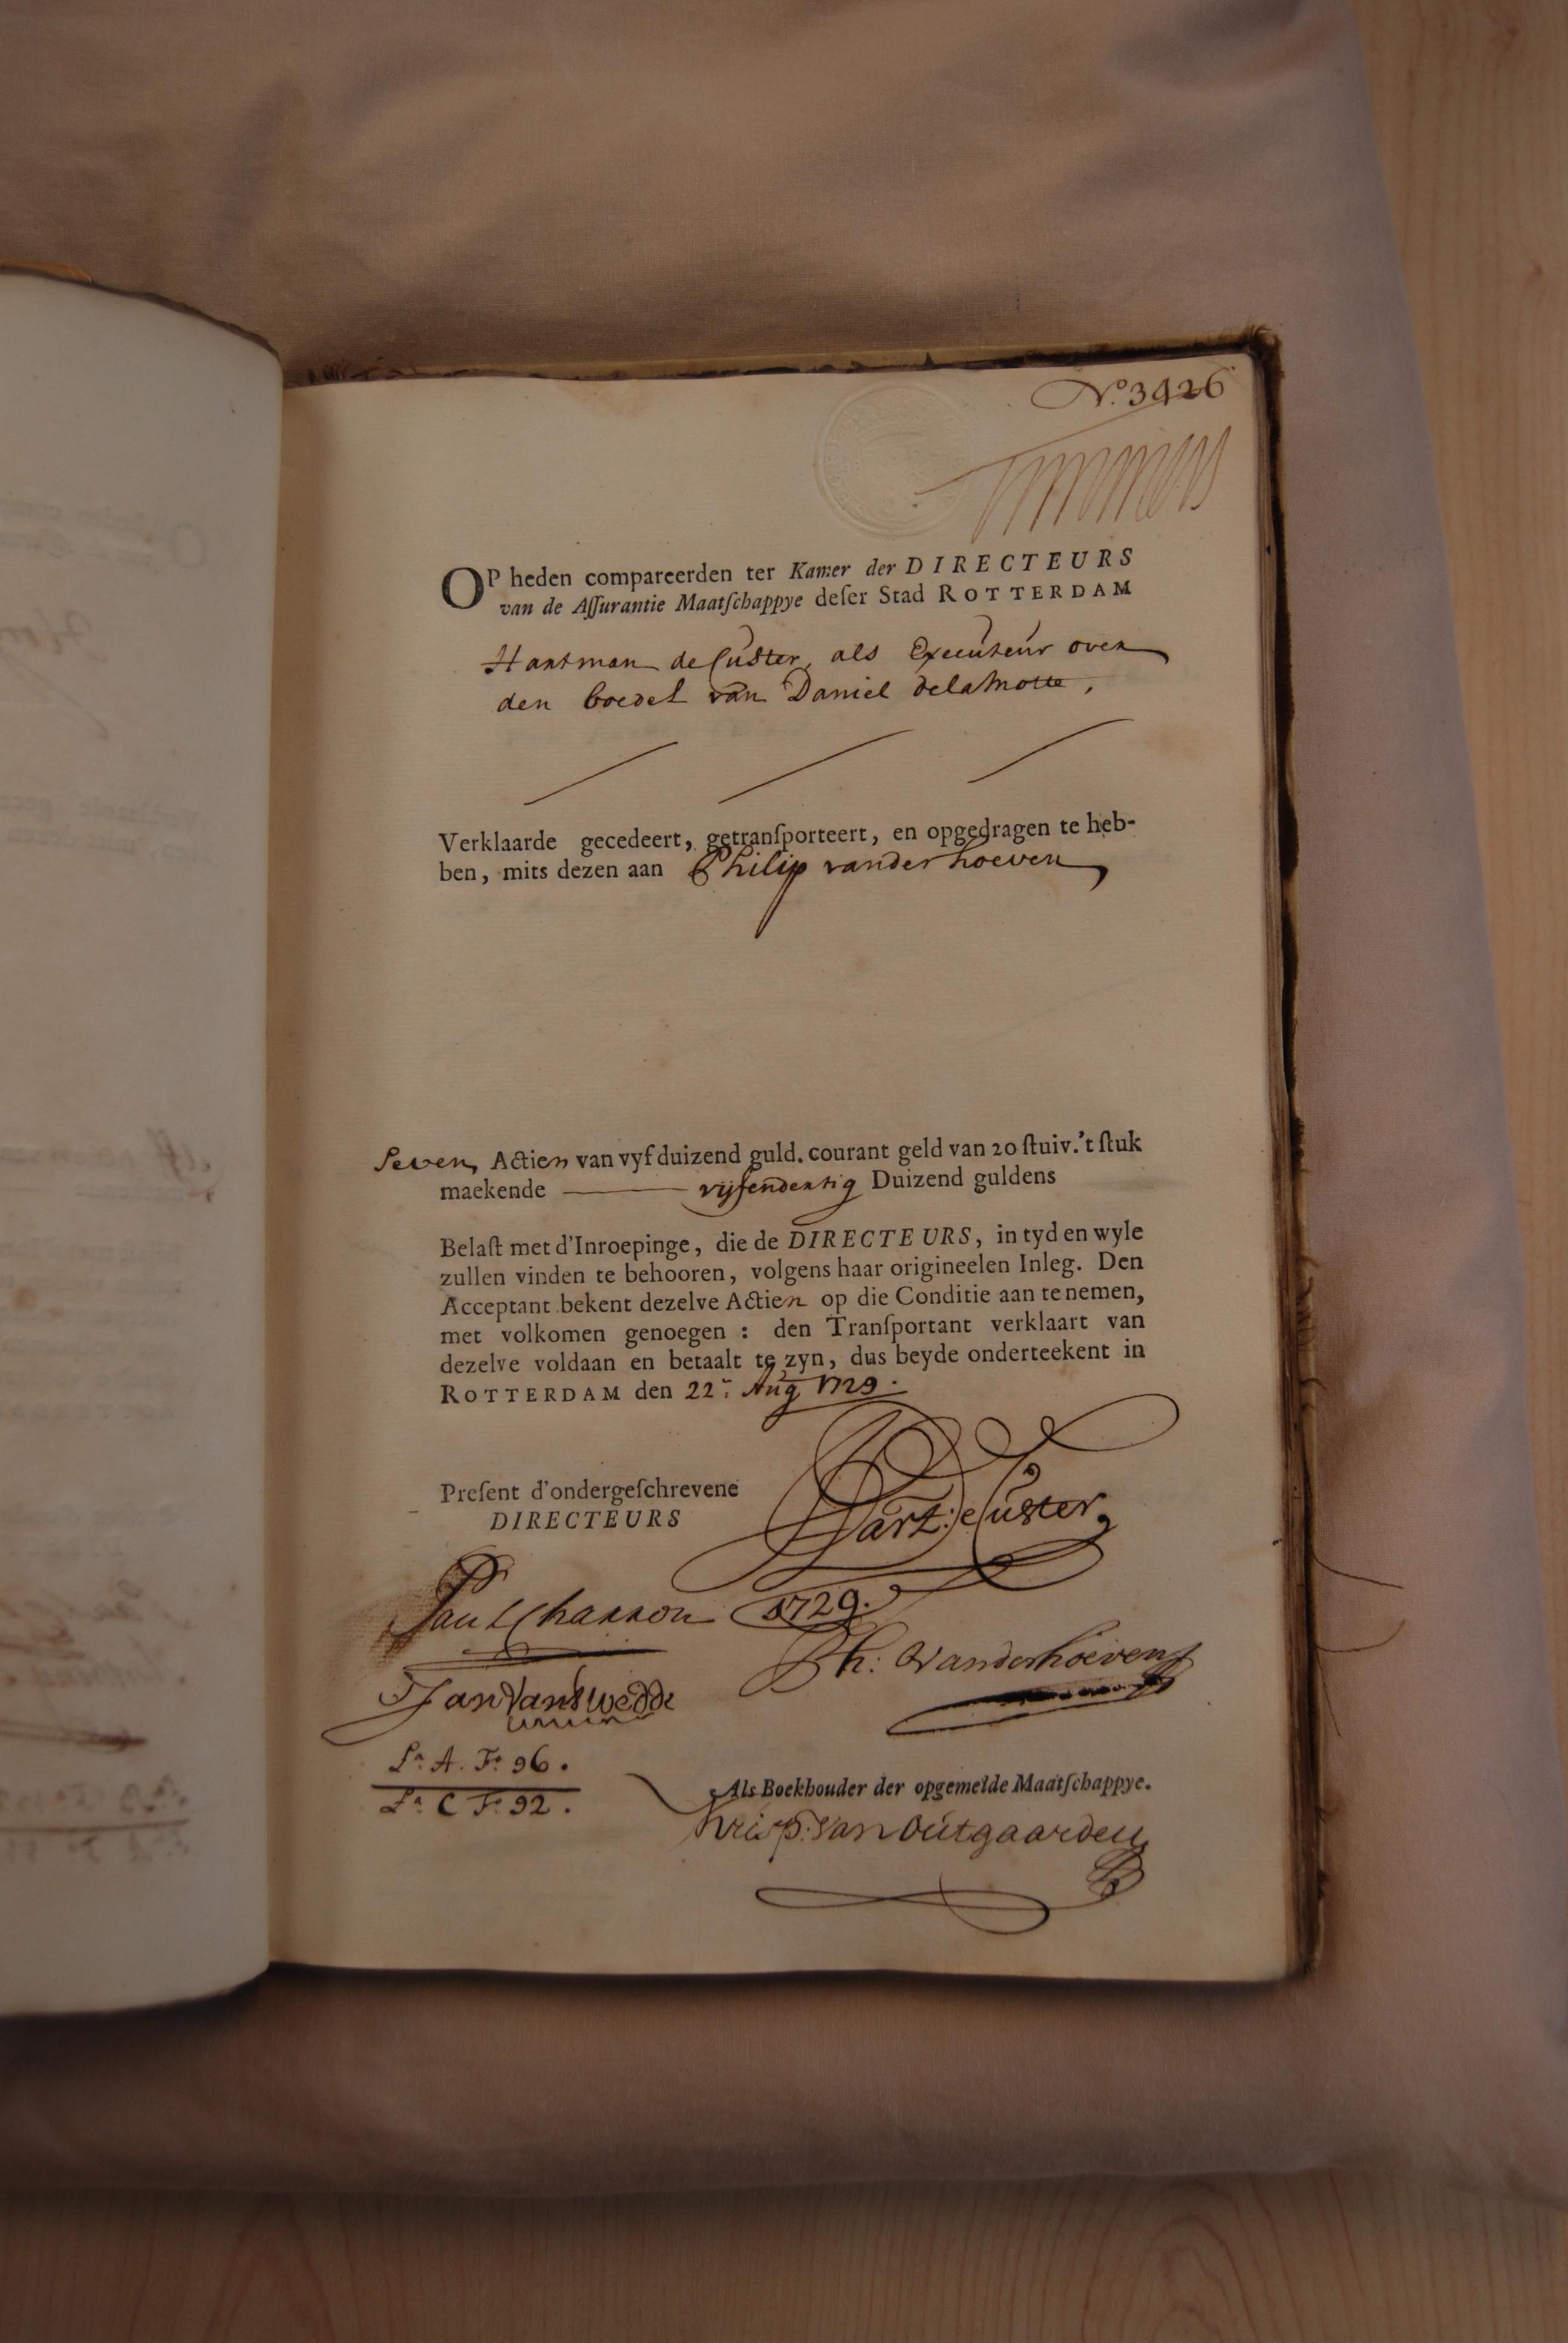 No. 3426
OP heden compareerden ter Kamer der DIRECTEURS
van de Aſſurantie Maatſchappye deſer Stad ROTTERDAM
Hartman de Custer, als Executeur over
den boedel van Daniel delaMotte,
Verklaarde gecedeert, getranſporteert, en opgedragen te heb-
ben, mits dezen aan Philip vander hoeven
Seven Actien van vyf duizend guld. courant geld van 20 ſtuiv. 't ſtuk
maekende vijfendertig Duizend guldens
Belaſt met d'Inroepinge, die de DIRECTEURS, in tyd en wyle
zullen vinden te behooren, volgens haar origineelen Inleg. Den
Acceptant bekent dezelve Actien op die Conditie aan te nemen,
met volkomen genoegen : den Tranſportant verklaart van
dezelve voldaan en betaalt te zyn, dus beyde onderteekent in
ROTTERDAM den 22: Aug 1729.
Preſent d'ondergeſchrevene
DIRECTEURS
Hart: de Custer
1729.
Paul Charron
Ph: Vanderhoeven
Jan Van Swedde
La. A. Fo. 96.
La. C Fo. 92.
Als Boekhouder der opgemelde Maatſchappye.
Krisp. van Outgaarden